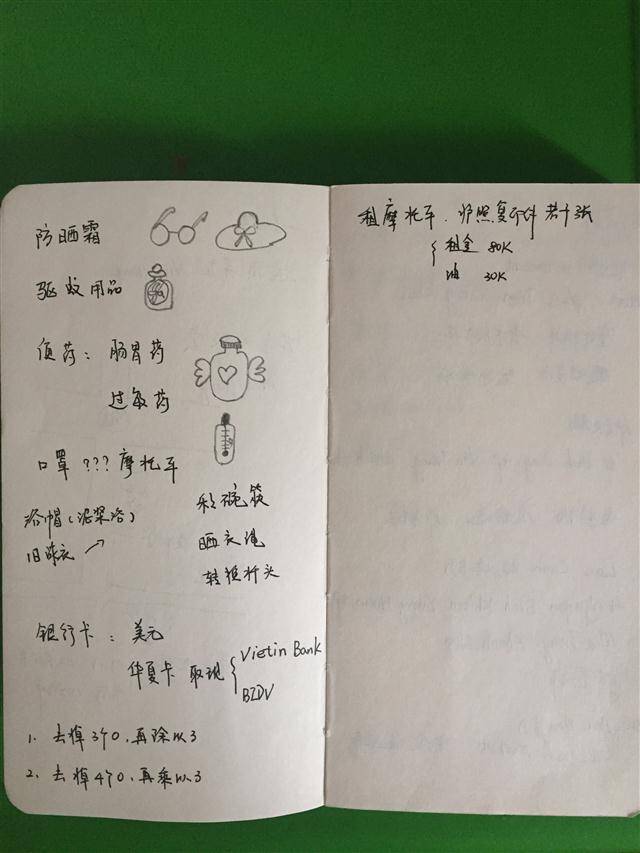 防晒霜
驱蚊用品
值药：肠胃药
过敏药
口罩 ???摩托车
浴帽(泥浆浴)
旧泳衣
碗筷
晒衣绳
转换插头
银行卡：美元
华夏卡 取现
Vietin Bank
BIDV
1. 去掉3个0，再除以3
2. 去掉4个0，再乘以3
租摩托车，护照复印件若干张
租金 80K
油 30K